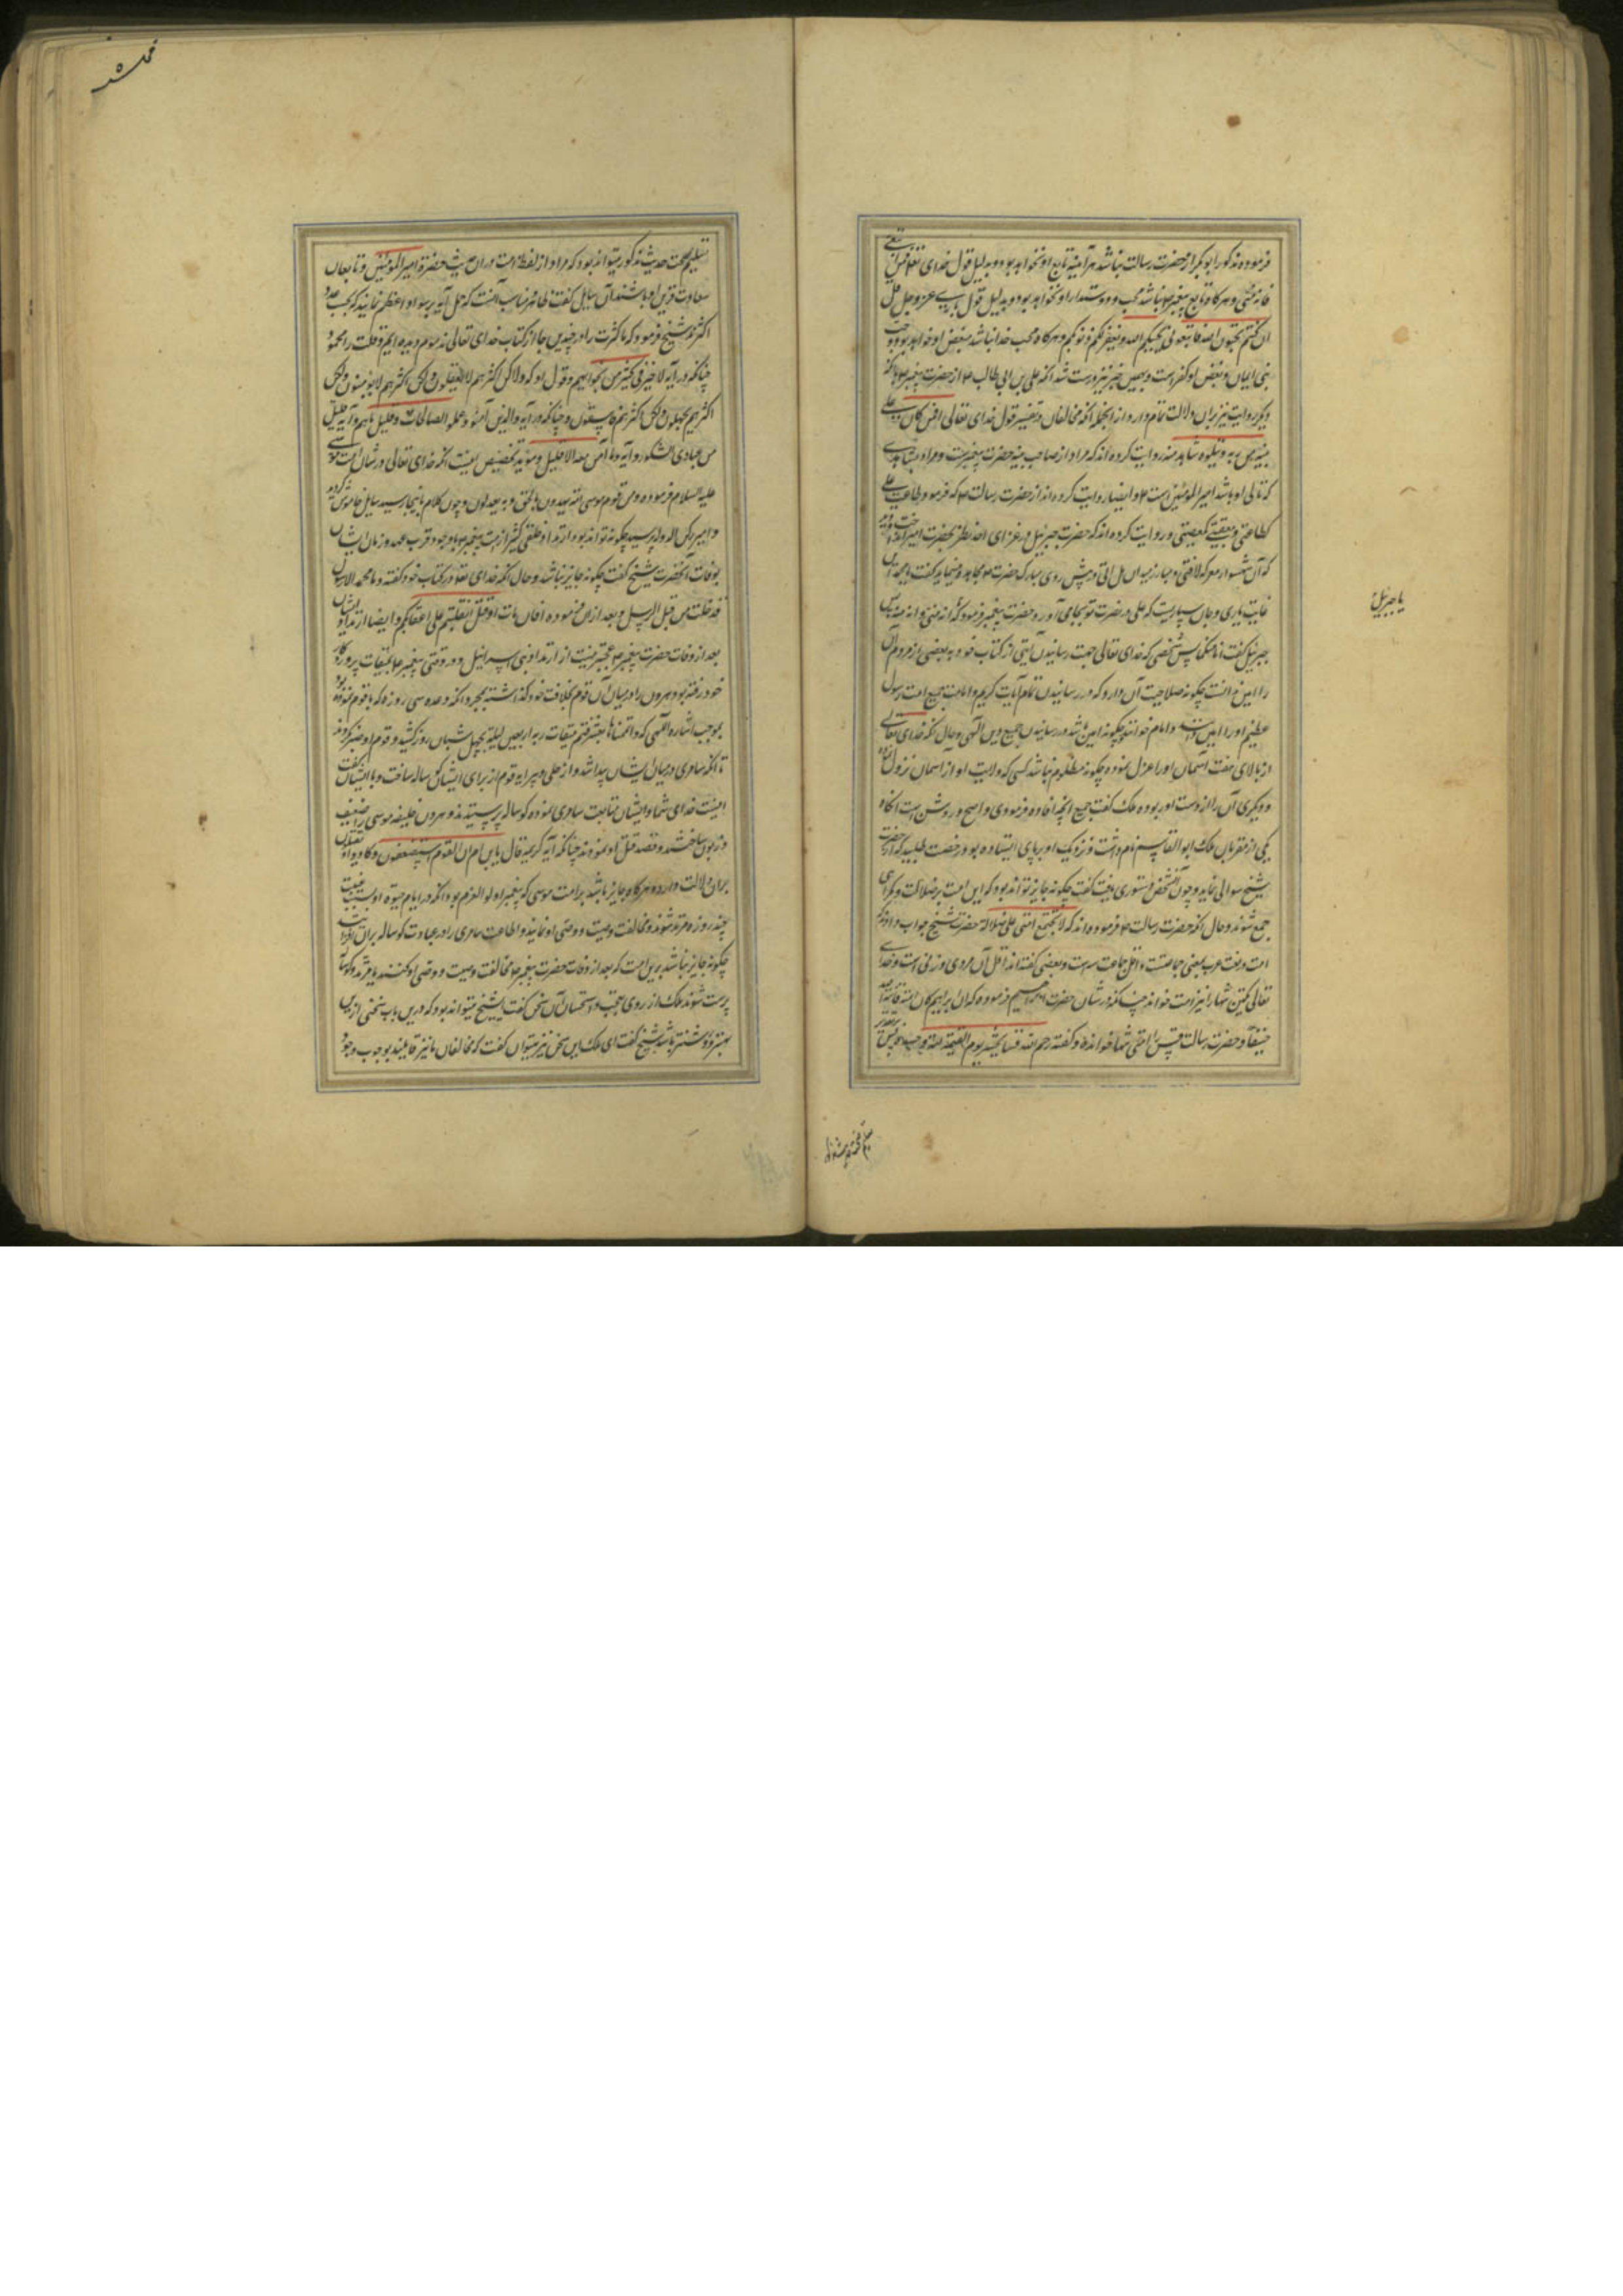 فرموده مذکور ابوبکر از حضرت رسالت نباشد هر آینه تابع او نخواهد بود و بدلیل قول خدای تعالی فمن تبعنی
فانه منی و هرکاه تابع پیغمبر نباشد محب و دوستدار او نخواهد بود و بدلیل قول باری عز و جل قل
ان کنتم تحبون الله فاتبعونی یحببکم الله و یغفر لکم ذنوبکم و هرکاه محب خدا نباشد مبغض او خواهد بود و حب
نبی ایمان و بغض او کفر است و بهمین خبر نیز درست شد انکه علی بن ابی طالب از حضرت پیغمبر
دیکر روایت نیز بران دلالت تمام دارد از انجمله انکه مخالفان در تفسیر قول خدای تعالی افمن کان علی
بینة من ربه و یتلوه شاهد منه روایت کرده اند که مراد از صاحب بینه حضرت پیغمبرست و مراد بشاهدی
که تالی او باشد امیر المؤمنین است و ایضا روایت کرده اند از حضرت رسالت که فرمود طاعت علی
کطاعتی و معصیته کمعصیتی و روایت کرده اند که حضرت جبرئیل در غزای احد نظر بحضرت امیر انداخت
که آن شهسوار معرکه لافتی و مبارز میدان هل اتی در پیش روی مبارک حضرت مجاهده مینماید کفت یا محمد این
غایت یاری و جان سپاریست که علی در نصرت تو بجا می آورد حضرت پیغمبر فرمود که انه منی و انا منه پس
جبرئیل کفت انا منکما پس شخصی که خدای تعالی جهت رسانیدن آیتی از کتاب خود به بعضی از مردم آن
را امین ندانست چکونه صلاحیت آن دارد که در رسانیدن تمام آیات کریم و امامت جمیع امت رسول
عظیم او را امین دانسته و امام خوانند و چکونه امین باشد در رسانیدن جمیع دین الهی و حال انکه خدای تعالی
از بالای هفت آسمان او را عزل نموده چکونه مظلوم نباشد کسی که ولایت او از آسمان نزول نموده
و دیکری آن را از دست او ربوده ملک کفت جمیع انچه افاده فرمودی واضح و روشن است انکاه
یکی از مقربان ملک ابو القاسم نام داشت و نزدیک او بر پای ایستاده بود رخصت طلبید که از حضرت
شیخ سوالی نماید و چون آن شخص دستوری یافت کفت چکونه جایز تواند بود که این امت بر ضلالت و کمراهی
جمع شوند و حال انکه حضرت رسالت فرموده اند که لا تجتمع امتی علی ضلالة حضرت شیخ جواب داد که
امت در لغت عرب بمعنی جماعتست و اقل جماعت سه است و بعضی کفته اند اقل آن مردی و زنی است و خدای
تعالی یک تن تنها را نیز امت خوانده چنانکه در شان حضرت ابراهیم فرموده که ان ابراهیم کان امة قانتا لله
حنیفا و حضرت رسالت قس را امتی تنها خوانده و کفته رحم الله قسا یحشر یوم القیمة امة وحده پس بر تقدیر
یا جبرئیل
تسلیم صحت حدیث مذکور میتواند بود که مراد از لفظ امت در ان حدیث حضرة امیر المؤمنین و تابعان
سعادت قرین او باشند آن سایل کفت ظاهر مناسب آنست که حمل آیه بر سواد اعظم نمایند که بحسب عدد
اکثرند شیخ فرمود که ما کثرت را در چندین جا از کتاب خدای تعالی مذموم دیده ایم و قلت را محمود
چنانکه در آیه لا خیر فی کثیر من نجواهم و قول او که ولکن اکثرهم لا یعقلون و لکن اکثرهم لا یؤمنون و لکن
اکثرهم یجهلون و لکن اکثرهم فاسقون و چنانکه در آیه و الذین آمنوا و عملوا الصالحات و قلیل ما هم و آیه قلیل
من عبادی الشکور و آیه و ما آمن معه الا قلیل و مؤید تخصیص اینست انکه خدای تعالی در شان امت موسی
علیه السلام فرموده و من قوم موسی امة یهدون بالحق و به یعدلون و چون کلام باینجا رسید سایل خاموش کردید
و امیر رکن الدوله پرسید چکونه تواند بود ارتداد خلقی کثیر از امت پیغمبر با وجود قرب عهد و زمان ایشان
بوفات آنحضرت شیخ کفت چکونه جایز نباشد و حال انکه خدای تعالی در کتاب خود کفته و ما محمد الا رسول
قد خلت من قبله الرسل و بعد ازان فرموده افان مات او قتل انقلبتم علی اعقابکم و ایضا ارتداد ایشان
بعد از وفات حضرت پیغمبر عجبتر نیست از ارتداد بنی اسرائیل در وقتی پیغمبر بمیقات پروردکار
خود رفته بود و هرون را در میان آن قوم بخلافت خود کذاشته بمجرد انکه وعده سی روزه که با قوم نموده بود
بموجب اشاره الهی که و اتممناها بعشر فتم میقات ربه اربعین لیلة بچهل شبان روز کشید و قوم او صبر نکردند
تا انکه سامری در میان ایشان پیدا شد و از حلی و پیرایه قوم از برای ایشان کوساله ساخت و با ایشان کفت
اینست خدای شما و ایشان متابعت سامری نموده کوساله پرستیدند و هرون خلیفه موسی را ضعیف
و زبون ساختند و قصد قتل او نمودند چنانکه آیه کریمه قال یابن ام ان القوم استضعفونی و کادوا یقتلوننی
بران دلالت دارد و هرکاه جایز باشد بر امت موسی که پیغمبر اولو العزم بود انکه در ایام حیوة او بسبب غیبت
چند روزه مرتد شوند و مخالفت وصیت و وصی او نمایند و اطاعت سامری را در عبادت کوساله بران افزایند
چکونه جایز نباشد برین امت که بعد از وفات حضرت پیغمبر مخالفت وصیت و وصی او کنند یا مرتد و کوساله
پرست شوند ملک از روی تعجب و استحسان آن سخن کفت ایشیخ میتواند بود که درین باب سخنی ازین
بهتر و روشنتر باشد شیخ کفت ای ملک این سخن نیز میتوان کفت که مخالفان ما نیز قایلند بوجوب وجود